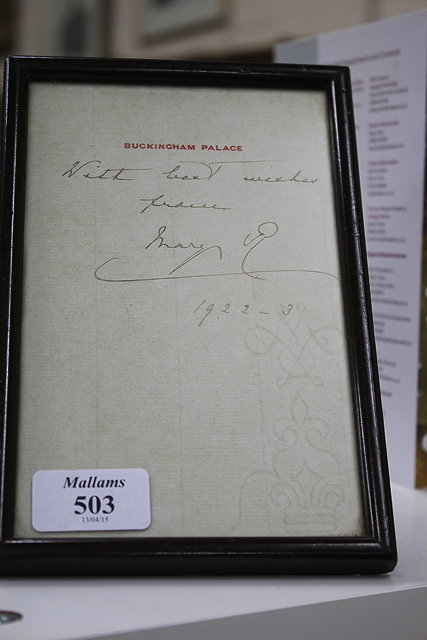 BUCKINGHAM PALACE
With best wishes
from
Mary R
1922-3
Mallams
503
13/04/15